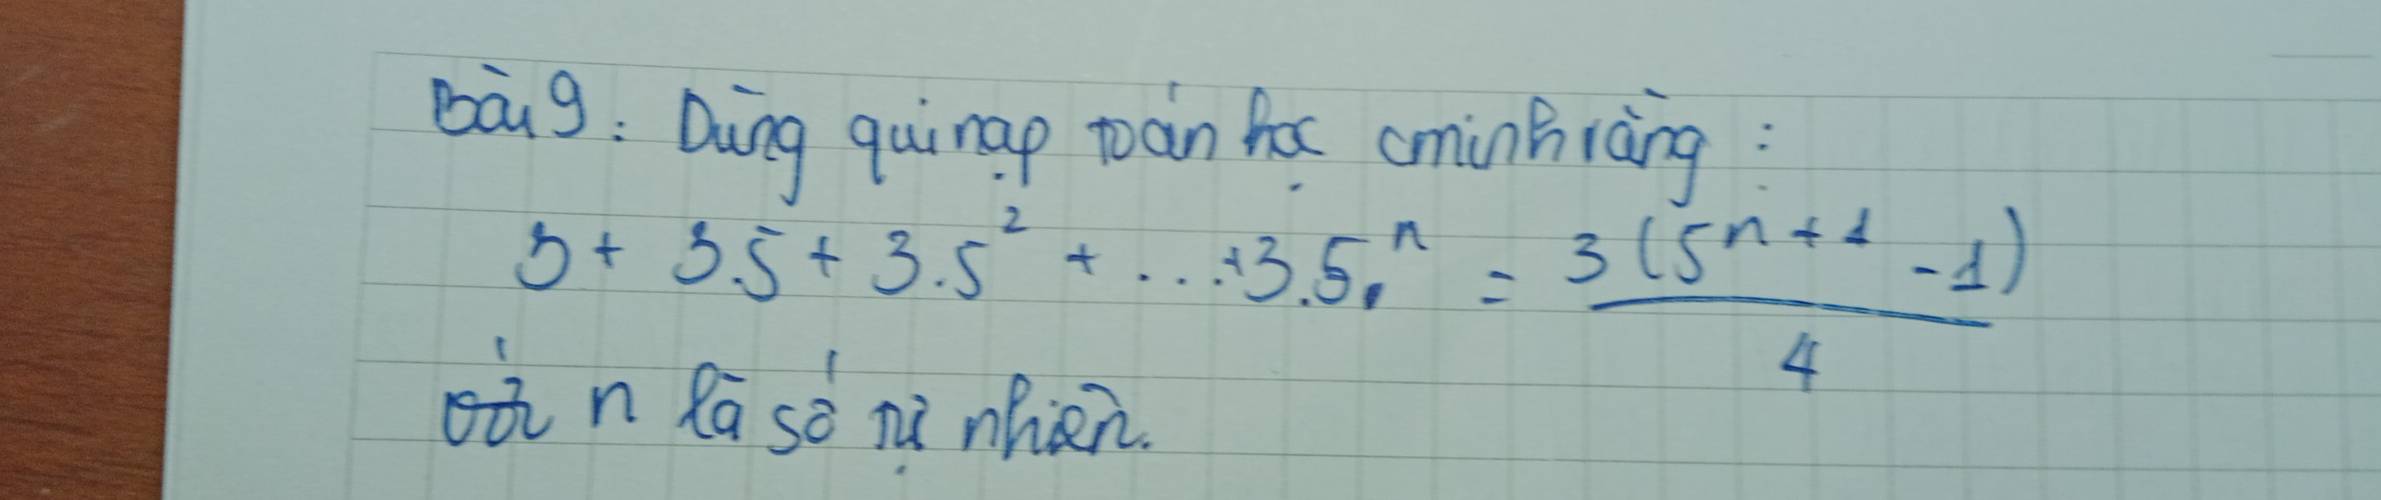 Bài 9: Dùng qui nạp toán học cminh rằng:
3 + 3.5 + 3.5² + ... + 3.5ⁿ = 3(5ⁿ⁺¹ - 1) / 4
với n là số tự nhiên.